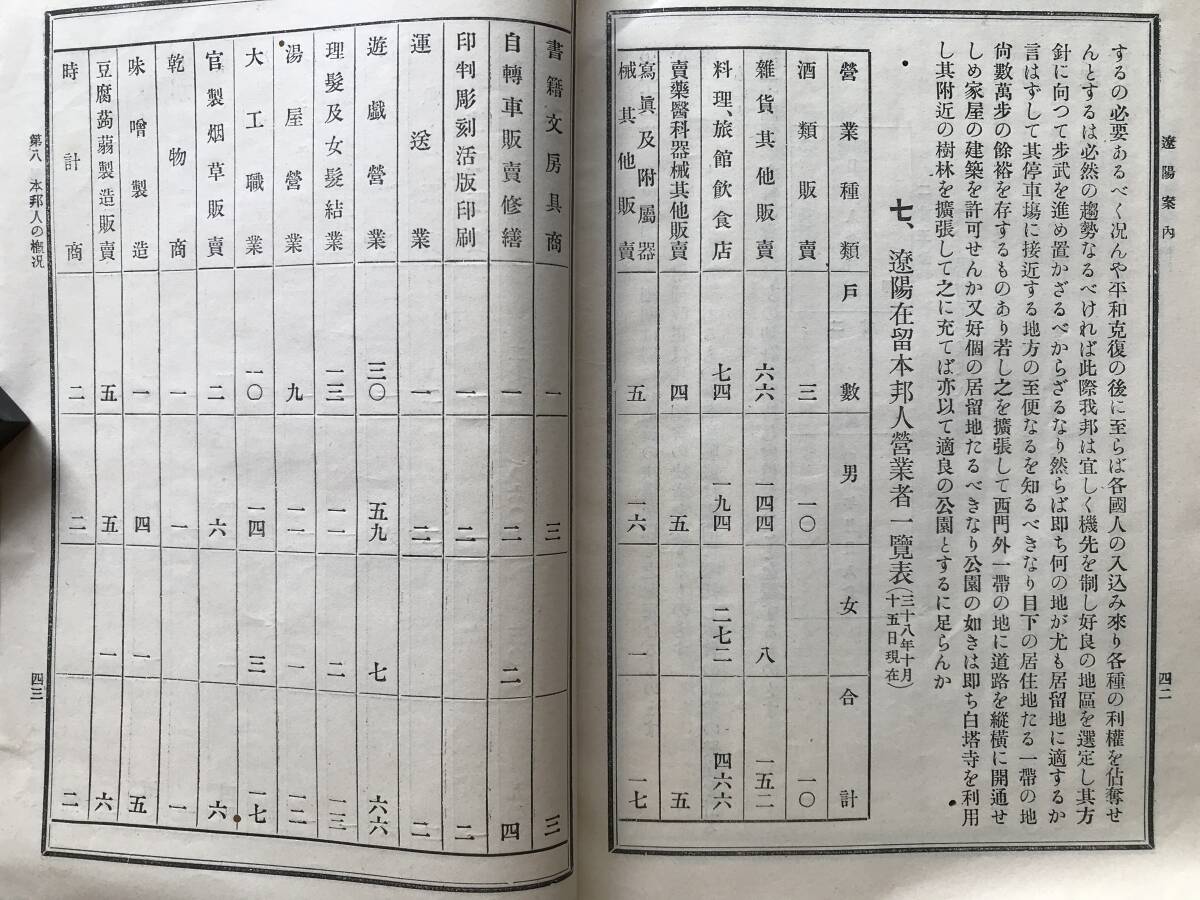 遼陽案內
四二
するの必要あるべく况んや平和克復の後に至らば各國人の入込み來り各種の利權を佔奪せ
んとするは必然の趨勢なるべければ此際我邦は宜しく機先を制し好良の地區を選定し其方
針に向つて步武を進め置かざるべからざるなり然らば即ち何の地が尤も居留地に適するか
言はずして其停車塲に接近する地方の至便なるを知るべきなり目下の居住地たる一帶の地
尙數萬步の餘裕を存するものあり若し之を擴張して西門外一帶の地に道路を縱橫に開通せ
しめ家屋の建築を許可せんか又好個の居留地たるべきなり公園の如きは即ち白塔寺を利用
し其附近の樹林を擴張して之に充てば亦以て適良の公園とするに足らんか
七、遼陽在留本邦人營業者一覽表(三十八年十月十五日現在)
營業種類 戶數 男 女 合計
酒類販賣 三 一〇 一〇
雜貨其他販賣 六六 一四四 八 一五二
料理、旅館飲食店 七四 一九四 二七二 四六六
賣藥醫科器械其他販賣 四 五 五
寫眞及附屬器械其他販賣 五 一六 一 一七
書籍文房具商 一 三 三
自轉車販賣修繕 一 二 二 四
印判彫刻活版印刷 一 二 二
運送業 一 二 二
遊戲營業 三〇 五九 七 六六
理髮及女髮結業 一三 一一 二 一三
湯屋營業 九 一一 一 一二
大工職業 一〇 一四 三 一七
官製烟草販賣 二 六 六
乾物商 一 一 一
味噌製造 一 四 一 五
豆腐蒟蒻製造販賣 五 五 一 六
時計商 二 二 二
第八 本邦人の槪況
四三